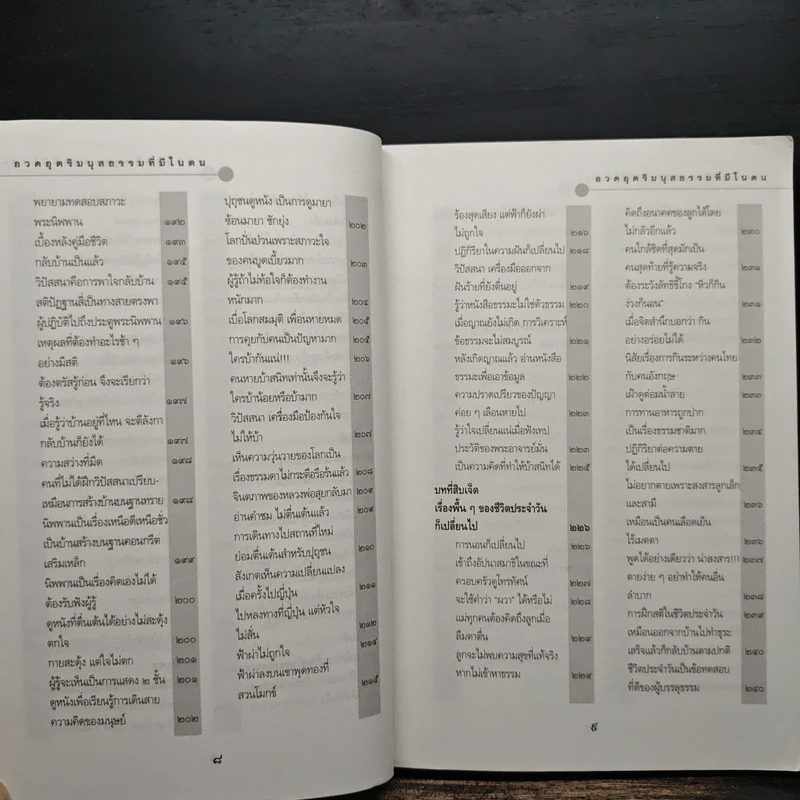 อวดอุตริมนุสธรรมที่มีในตน
พยายามทดสอบสภาวะ
พระนิพพาน ๑๙๒
เบื้องหลังคู่มือชีวิต ๑๙๓
กลับบ้านเป็นแล้ว ๑๙๕
วิปัสสนาคือการพาใจกลับบ้าน ๑๙๕
สติปัฏฐานสี่เป็นทางสายตรงพา
ผู้ปฏิบัติไปถึงประตูพระนิพพาน ๑๙๖
เหตุผลที่ต้องทำอะไรช้า ๆ
อย่างมีสติ ๑๙๖
ต้องตรัสรู้ก่อน จึงจะเรียกว่า
รู้จริง ๑๙๗
เมื่อรู้ว่าบ้านอยู่ที่ไหน จะตีลังกา
กลับบ้านก็ยังได้ ๑๙๗
ความสว่างที่มืด ๑๙๘
คนที่ไม่ได้ฝึกวิปัสสนาเปรียบ-
เหมือนการสร้างบ้านบนฐานทราย ๑๙๘
นิพพานเป็นเรื่องเหนือดีเหนือชั่ว
เป็นบ้านสร้างบนฐานคอนกรีต
เสริมเหล็ก ๑๙๙
นิพพานเป็นเรื่องคิดเองไม่ได้
ต้องรับฟังผู้รู้ ๒๐๐
ดูหนังที่ตื่นเต้นได้อย่างไม่สะดุ้ง
ตกใจ ๒๐๐
กายสะดุ้ง แต่ใจไม่ตก ๒๐๑
ผู้รู้จะเห็นเป็นการแสดง ๒ ชั้น ๒๐๑
ดูหนังเพื่อเรียนรู้การเดินสาย
ความคิดของมนุษย์ ๒๐๒
ปุถุชนดูหนัง เป็นการดูมายา
ซ้อนมายา ชักยุ่ง ๒๐๒
โลกปั่นป่วนเพราะสภาวะใจ
ของคนบูดเบี้ยวมาก ๒๐๓
ผู้รู้ถ้าไม่ท้อใจก็ต้องทำงาน
หนักมาก ๒๐๔
เบื่อโลกสมมุติ เพื่อนหายหมด ๒๐๕
การคุยกับคนเป็นปัญหามาก ๒๐๕
ใครบ้ากันแน่!!! ๒๐๖
คนหายบ้าสนิทเท่านั้นจึงจะรู้ว่า
ใครบ้าน้อยหรือบ้ามาก ๒๐๗
วิปัสสนา เครื่องมือป้องกันใจ
ไม่ให้บ้า ๒๐๗
เห็นความวุ่นวายของโลกเป็น
เรื่องธรรมดาไม่กระตือรือร้นแล้ว ๒๐๘
จินตภาพของหลวงพ่อสุยกลับมา ๒๐๙
อ่านคำชม ไม่ตื่นเต้นแล้ว ๒๐๙
การเดินทางไปสถานที่ใหม่
ย่อมตื่นเต้นสำหรับปุถุชน ๒๑๐
สังเกตเห็นความเปลี่ยนแปลง
เมื่อครั้งไปญี่ปุ่น ๒๑๑
ไปหลงทางที่ญี่ปุ่น แต่หัวใจ
ไม่สั่น ๒๑๒
ฟ้าผ่าไม่ถูกใจ ๒๑๔
ฟ้าผ่าลงบนเขาพุดทองที่
สวนโมกข์ ๒๑๕
๘
อวดอุตริมนุสธรรมที่มีในตน
ร้องสุดเสียง แต่ฟ้าก็ยังผ่า
ไม่ถูกใจ ๒๑๖
ปฏิกิริยาในความฝันก็เปลี่ยนไป ๒๑๘
วิปัสสนา เครื่องมือออกจาก
ฝันร้ายที่ยังตื่นอยู่ ๒๑๙
รู้ว่าหนังสือธรรมะไม่ใช่ตัวธรรม ๒๒๐
เมื่อญาณยังไม่เกิด การวิเคราะห์
ข้อธรรมจะไม่สมบูรณ์ ๒๒๑
หลังเกิดญาณแล้ว อ่านหนังสือ
ธรรมะเพื่อเอาข้อมูล ๒๒๒
ความปราดเปรียวของปัญญา
ค่อย ๆ เลือนหายไป ๒๒๓
รู้ว่าใจเปลี่ยนแน่เมื่อฟังเทป
ประวัติของพระอาจารย์มั่น ๒๒๓
เป็นความคิดที่ทำให้บ้าสนิทได้ ๒๒๕
บทที่สิบเจ็ด
เรื่องพื้น ๆ ของชีวิตประจำวัน
ก็เปลี่ยนไป ๒๒๖
การนอนก็เปลี่ยนไป ๒๒๖
เข้าถึงอัปนาสมาธิในขณะที่
ครอบครัวดูโทรทัศน์ ๒๒๗
จะใช้คำว่า "ผวา" ได้หรือไม่ ๒๒๘
แม่ทุกคนต้องคิดถึงลูกเมื่อ
ลืมตาตื่น ๒๒๙
ลูกจะไม่พบความสุขที่แท้จริง
หากไม่เข้าหาธรรม ๒๒๙
คิดถึงอนาคตของลูกได้โดย
ไม่กลัวอีกแล้ว ๒๓๐
คนใกล้ชิดที่สุดมักเป็น
คนสุดท้ายที่รู้ความจริง ๒๓๑
ต้องระวังลัทธิขี้โกง "หิวก็กิน
ง่วงก็นอน" ๒๓๑
เมื่อจิตสำนึกบอกว่า กิน
อย่างอร่อยไม่ได้ ๒๓๒
นิสัยเรื่องการกินระหว่างคนไทย
กับคนอังกฤษ ๒๓๒
เฝ้าดูต่อมน้ำลาย ๒๓๓
การทานอาหารถูกปาก
เป็นเรื่องธรรมชาติมาก ๒๓๔
ปฏิกิริยาต่อความตาย
ได้เปลี่ยนไป ๒๓๕
ไม่อยากตายเพราะสงสารลูกเล็ก
และสามี ๒๓๖
เหมือนเป็นคนเลือดเย็น
ไร้เมตตา ๒๓๖
พูดได้อย่างเดียวว่า น่าสงสาร!!! ๒๓๗
ตายง่าย ๆ อย่าทำให้คนอื่น
ลำบาก ๒๓๘
การฝึกสติในชีวิตประจำวัน ๒๓๙
เหมือนออกจากบ้านไปทำธุระ
เสร็จแล้วก็กลับบ้านตามปกติ
ชีวิตประจำวันเป็นข้อทดสอบ
ที่ดีของผู้บรรลุธรรม ๒๔๐
๙